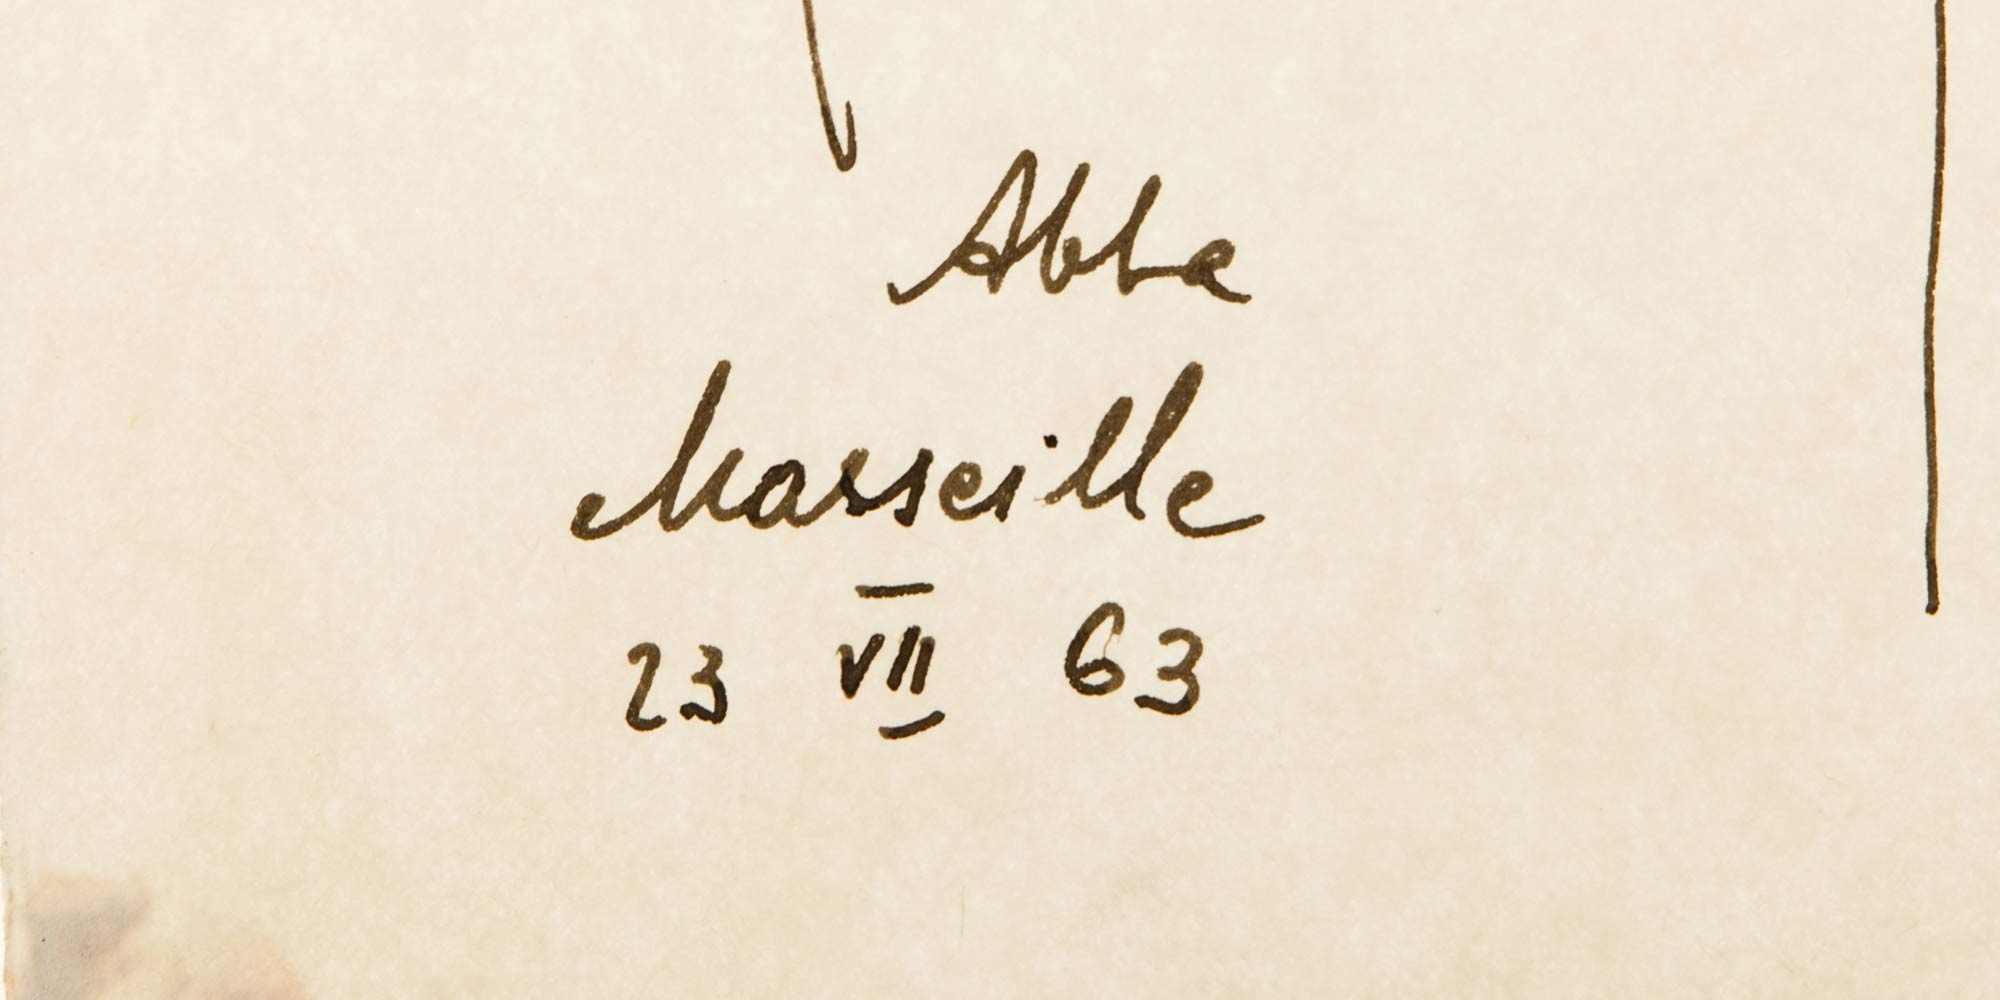 Abba
Marseille
23 VII 63